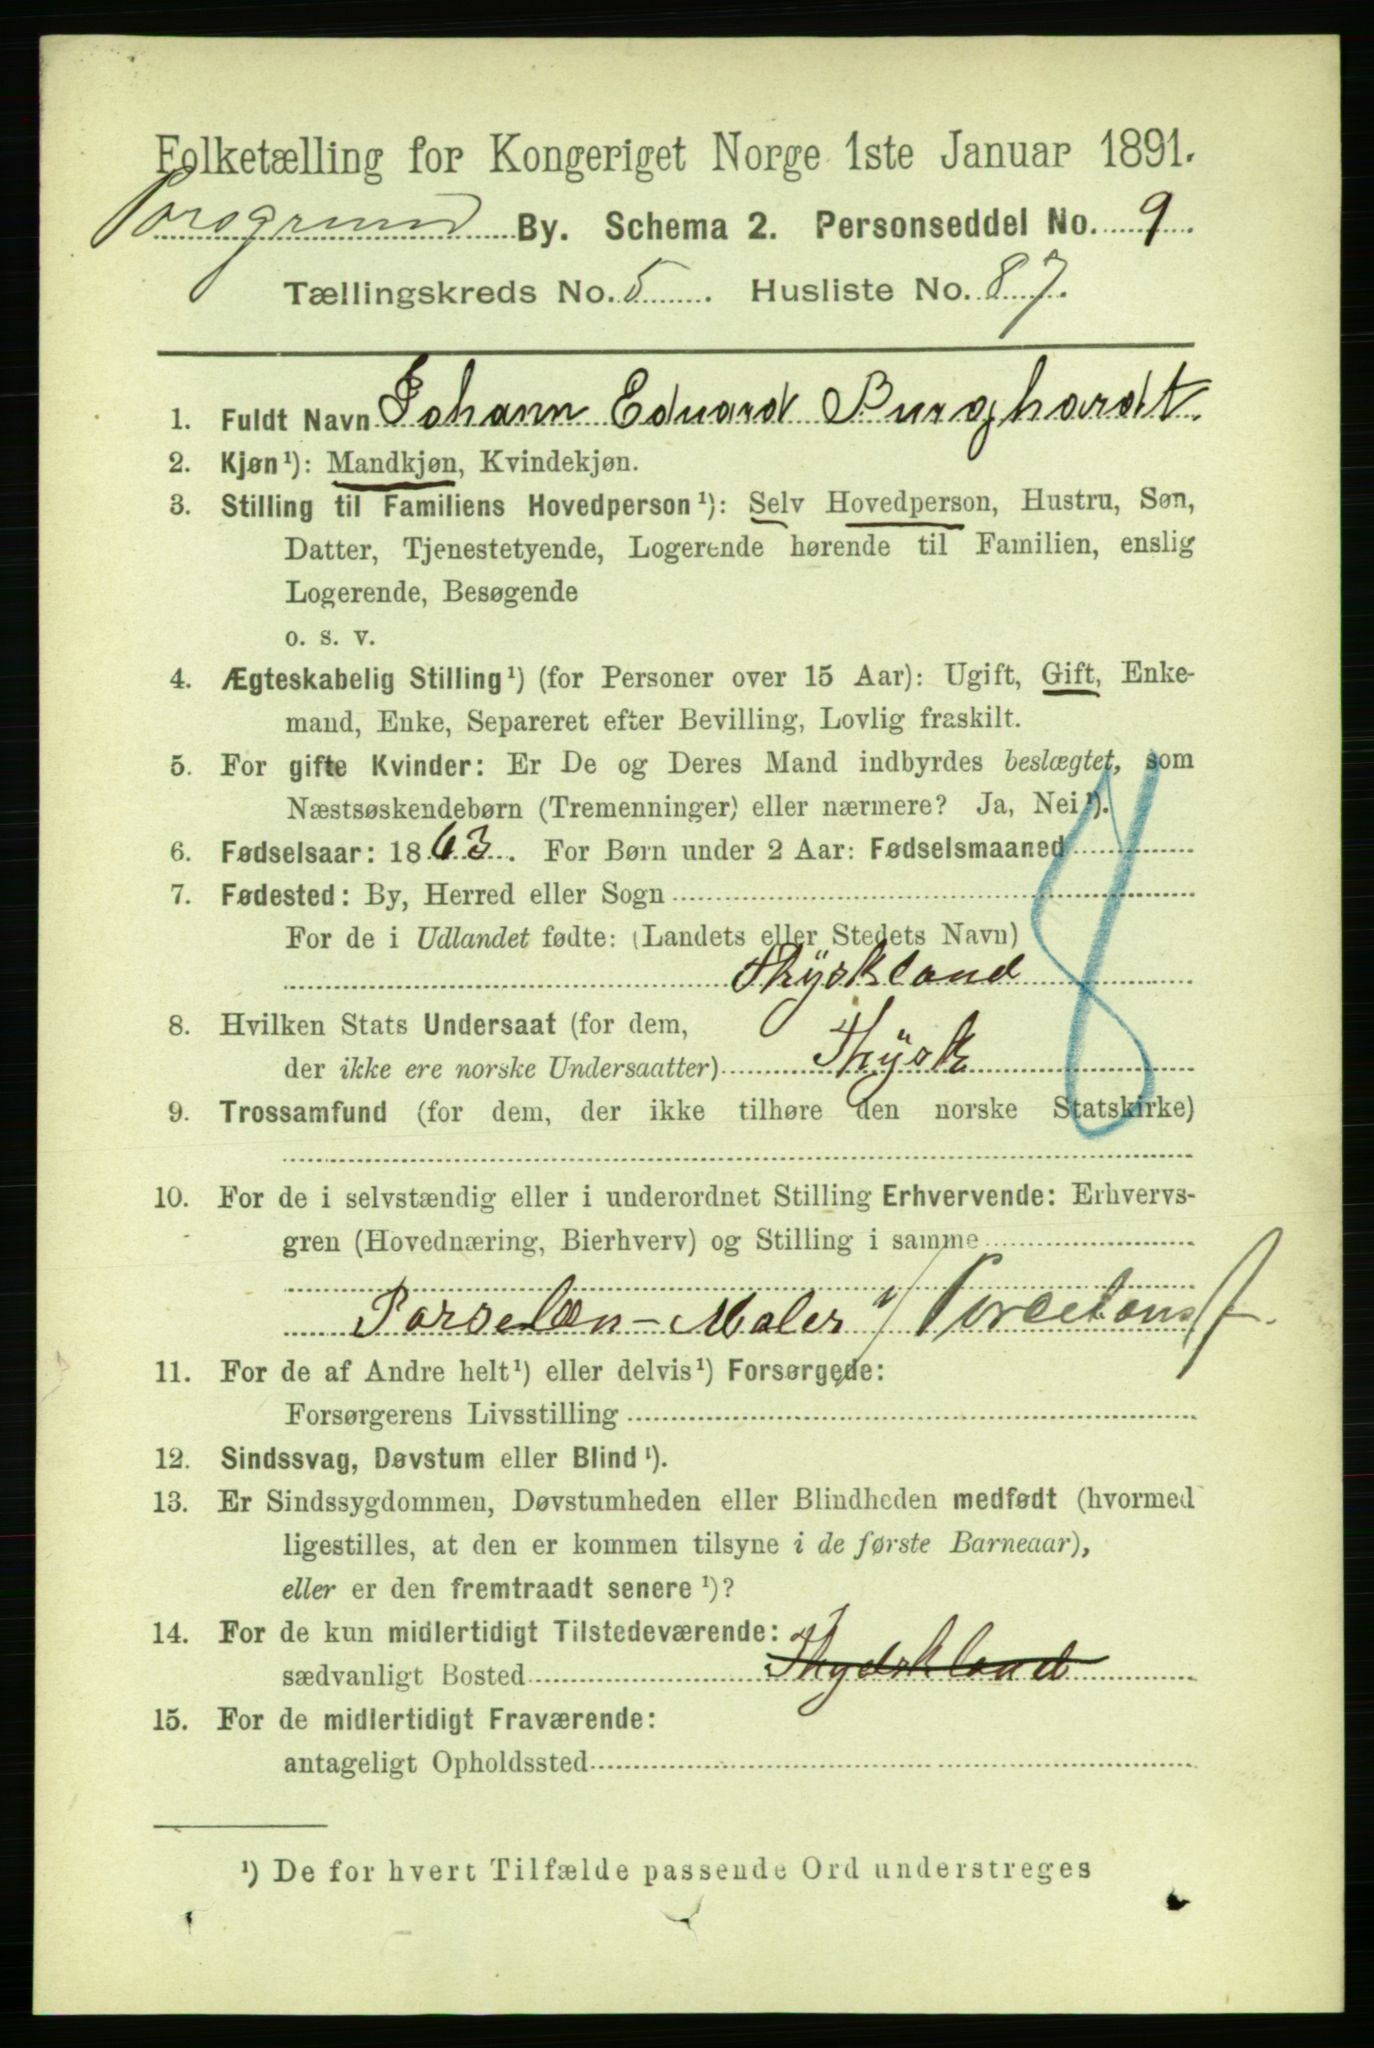 Folketælling for Kongeriget Norge 1ste Januar 1891.
Porsgrund By. Schema 2. Personseddel No. 9.
Tællingskreds No. 5. Husliste No. 87.
1. Fuldt Navn Johann Eduard Burghardt.
2. Kjøn¹): Mandkjøn, Kvindekjøn.
3. Stilling til Familiens Hovedperson¹): Selv Hovedperson, Hustru, Søn,
Datter, Tjenestetyende, Logerende hørende til Familien, enslig
Logerende, Besøgende
o. s. v.
4. Ægteskabelig Stilling¹) (for Personer over 15 Aar): Ugift, Gift, Enke-
mand, Enke, Separeret efter Bevilling, Lovlig fraskilt.
5. For gifte Kvinder: Er De og Deres Mand indbyrdes beslægtet, som
Næstsøskendebørn (Tremenninger) eller nærmere? Ja, Nei¹).
6. Fødselsaar: 1863. For Børn under 2 Aar: Fødselsmaaned
7. Fødested: By, Herred eller Sogn
For de i Udlandet fødte: (Landets eller Stedets Navn)
Thyskland
8
8. Hvilken Stats Undersaat (for dem,
der ikke ere norske Undersaatter) Thysk
9. Trossamfund (for dem, der ikke tilhøre den norske Statskirke)
10. For de i selvstændig eller i underordnet Stilling Erhvervende: Erhvervs-
gren (Hovednæring, Bierhverv) og Stilling i samme
Porselæn-Maler v/ Porcelansf.
11. For de af Andre helt¹) eller delvis¹) Forsørgede:
Forsørgerens Livsstilling
12. Sindssvag, Døvstum eller Blind¹).
13. Er Sindssygdommen, Døvstumheden eller Blindheden medfødt (hvormed
ligestilles, at den er kommen tilsyne i de første Barneaar),
eller er den fremtraadt senere¹)?
14. For de kun midlertidigt Tilstedeværende:
sædvanligt Bosted Thydskland
15. For de midlertidigt Fraværende:
antageligt Opholdssted
¹) De for hvert Tilfælde passende Ord understreges